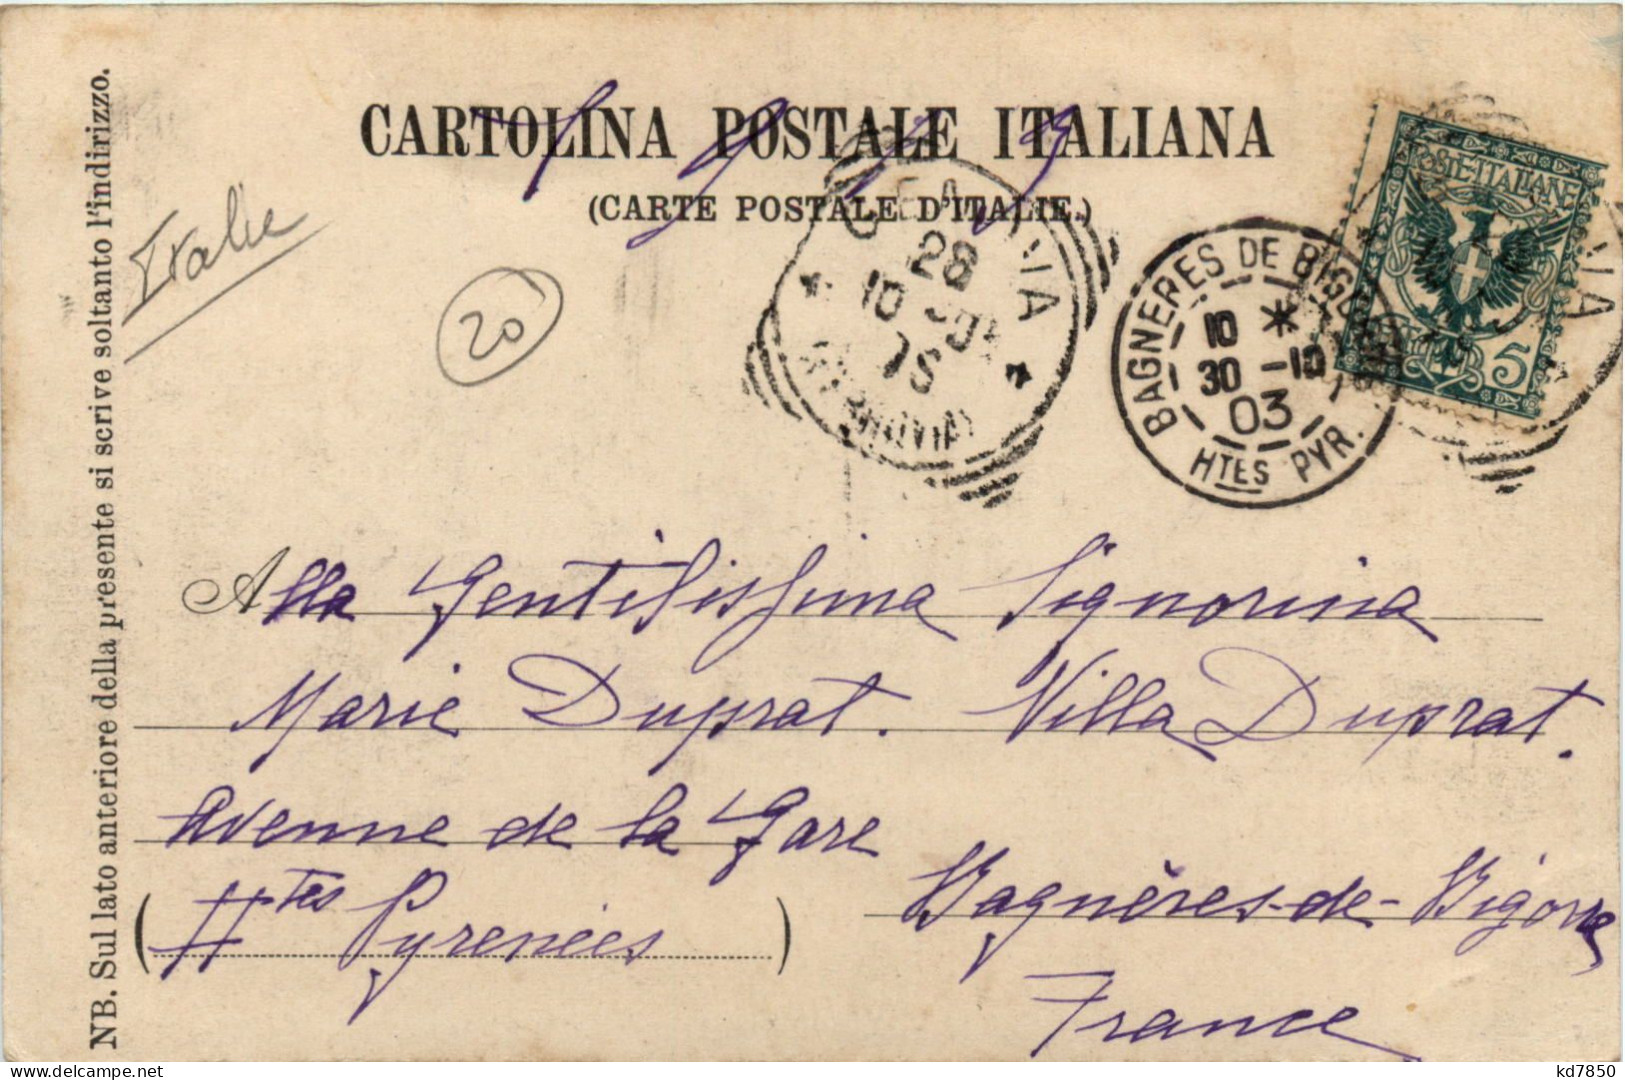 CARTOLINA POSTALE ITALIANA
(CARTE POSTALE D'ITALIE.)
NB. Sul lato anteriore della presente si scrive soltanto l'indirizzo.
Italie
20
28
10
BAGNERES DE BIGORRE
10 *
30 -10
03
HTES PYR.
POSTE·ITALIANE
5
Alla Gentilissima Signorina
Marie Duprat. Villa Duprat.
Avenue de la Gare
(Htes Pyrenées) Bagnères-de-Bigorre
France
kd7850